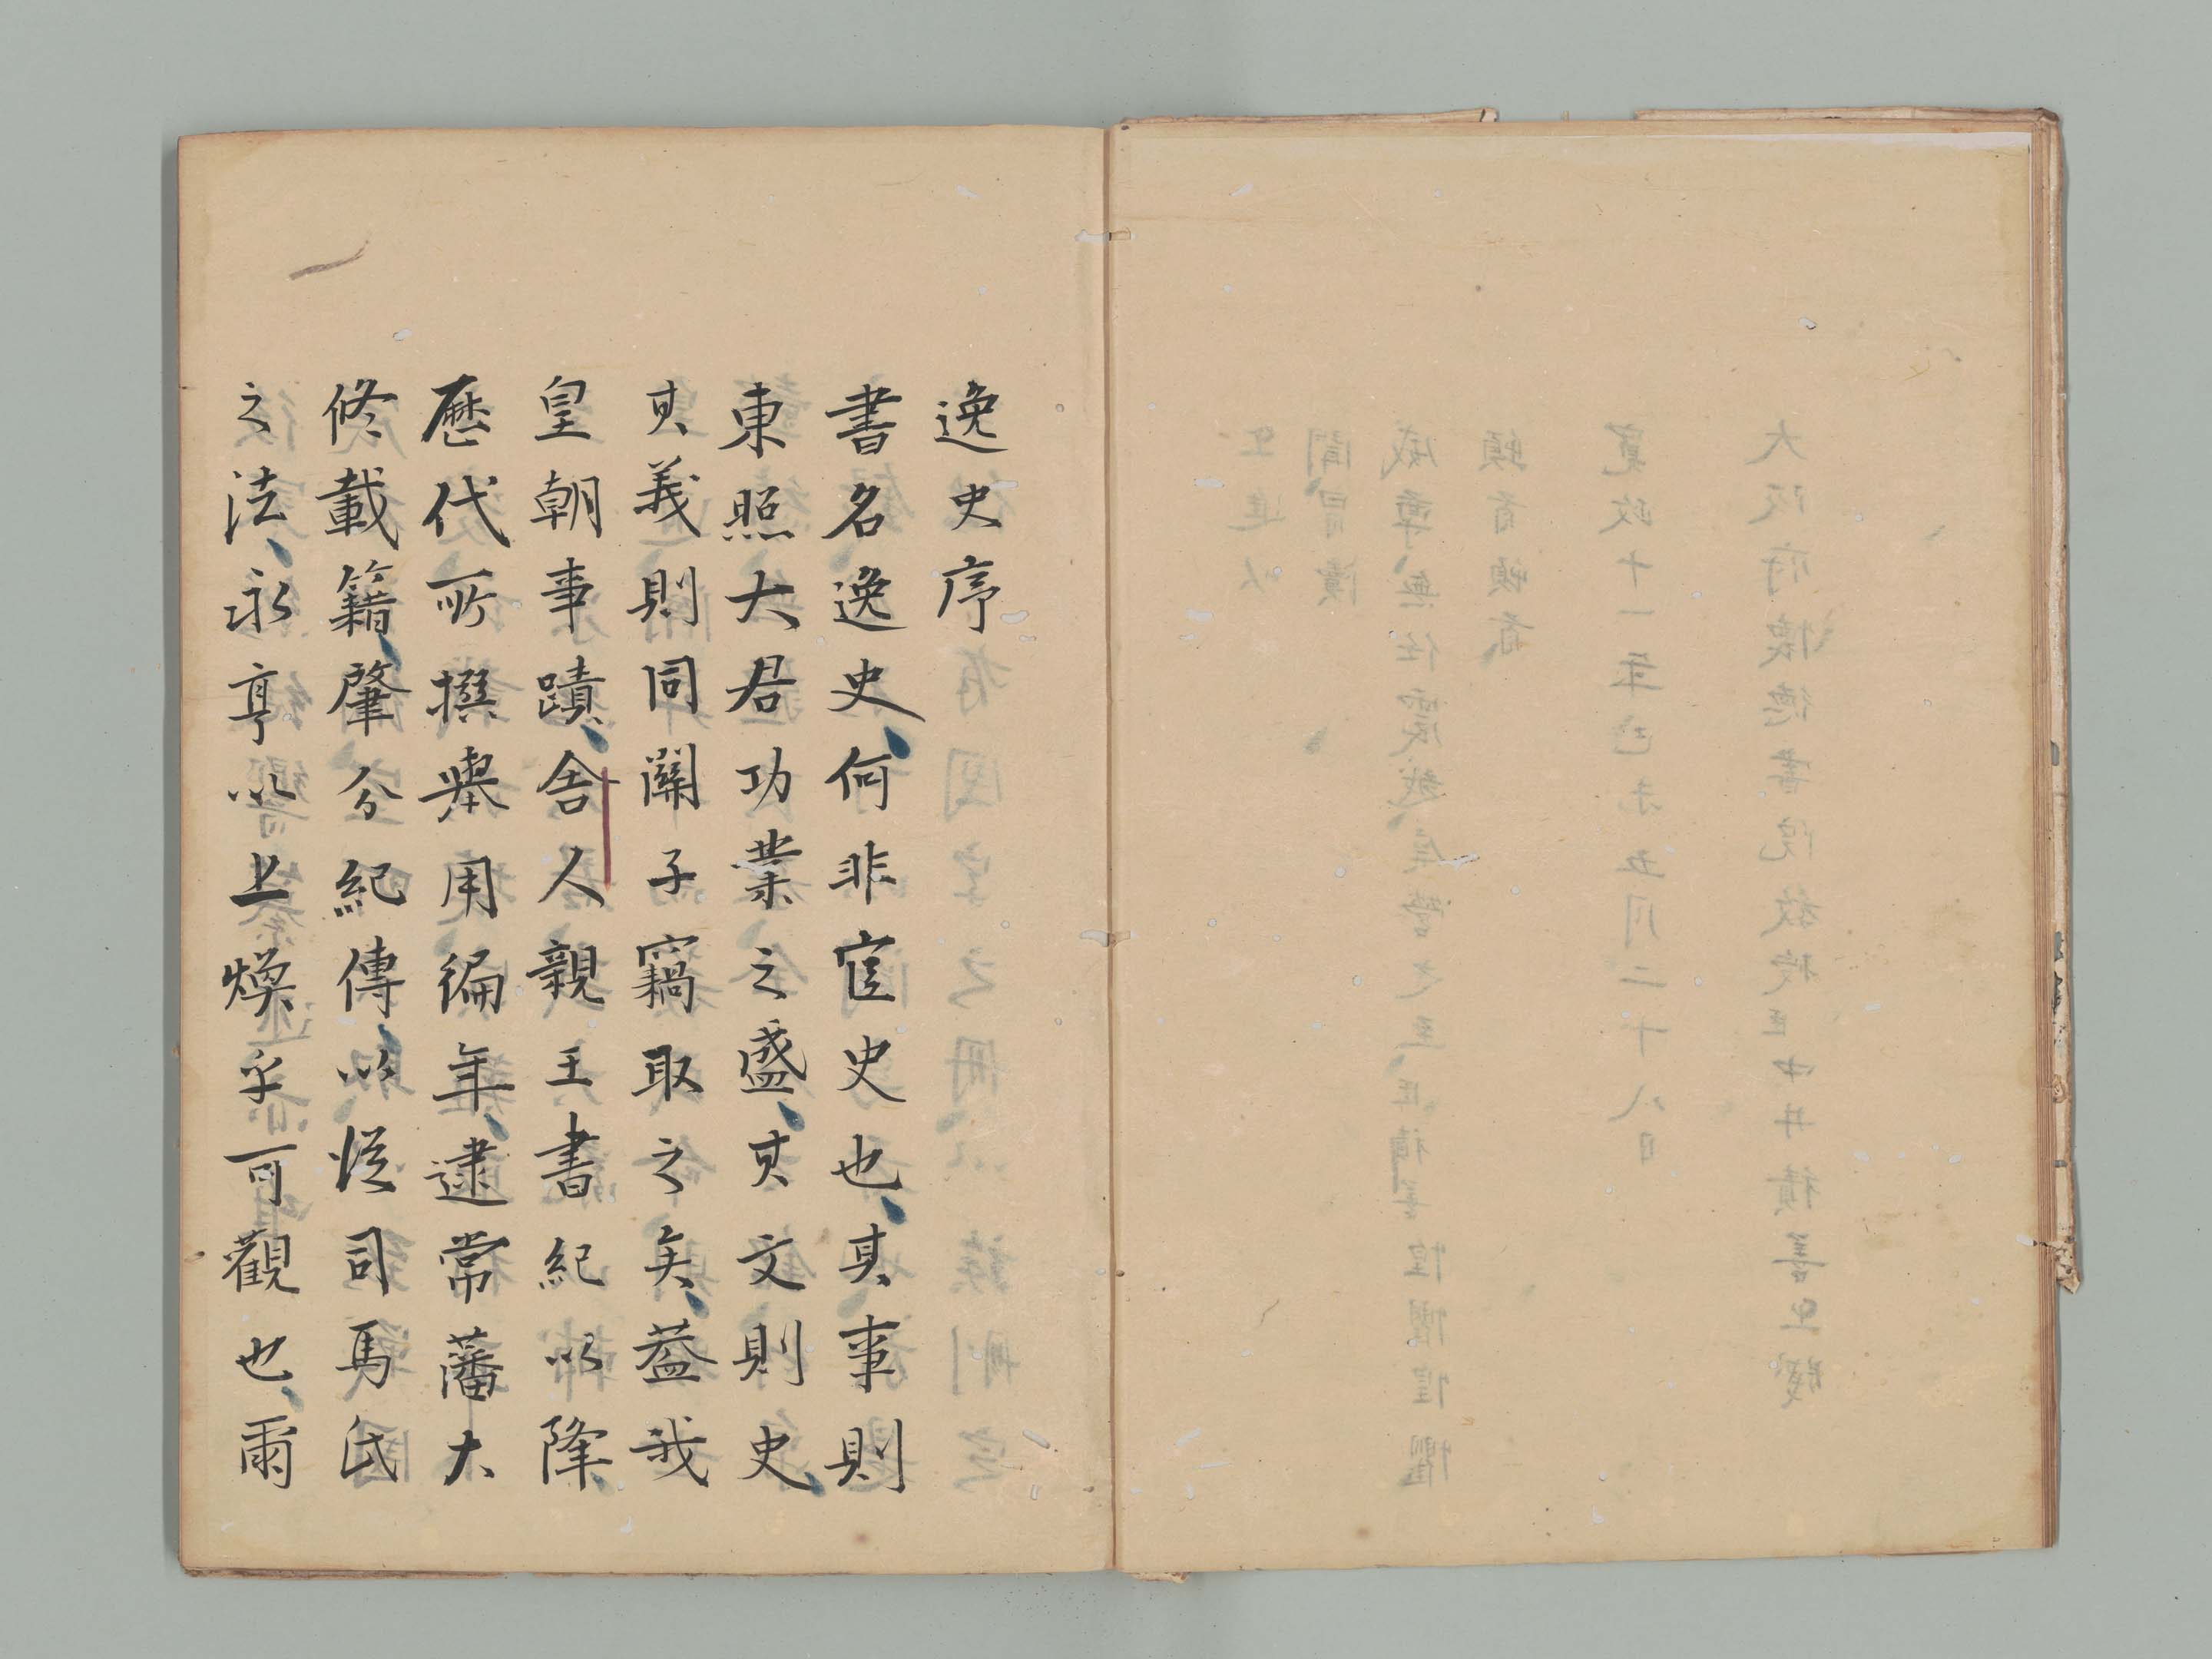 逸史序
書名逸史、何非官史也、其事則
東照大君功業之盛、其文則史、
其義則同關子竊取之矣、蓋我
皇朝事蹟、舍人親王書紀以降
歷代所撰舉用編年、逮常藩大
修載籍、肇分紀傳、以從司馬氏
之法、永享以上煥乎可觀也、爾